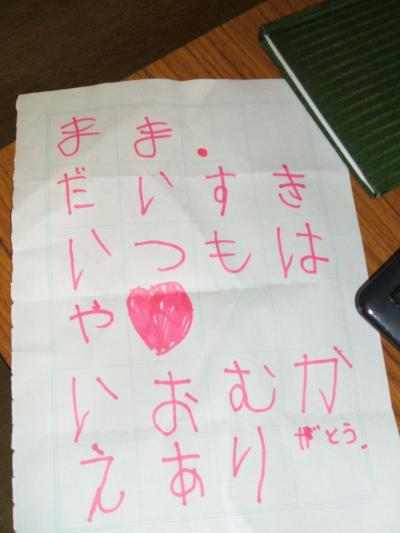 まま.
だいすき
いつもは
や
いおむか
えありがとう.